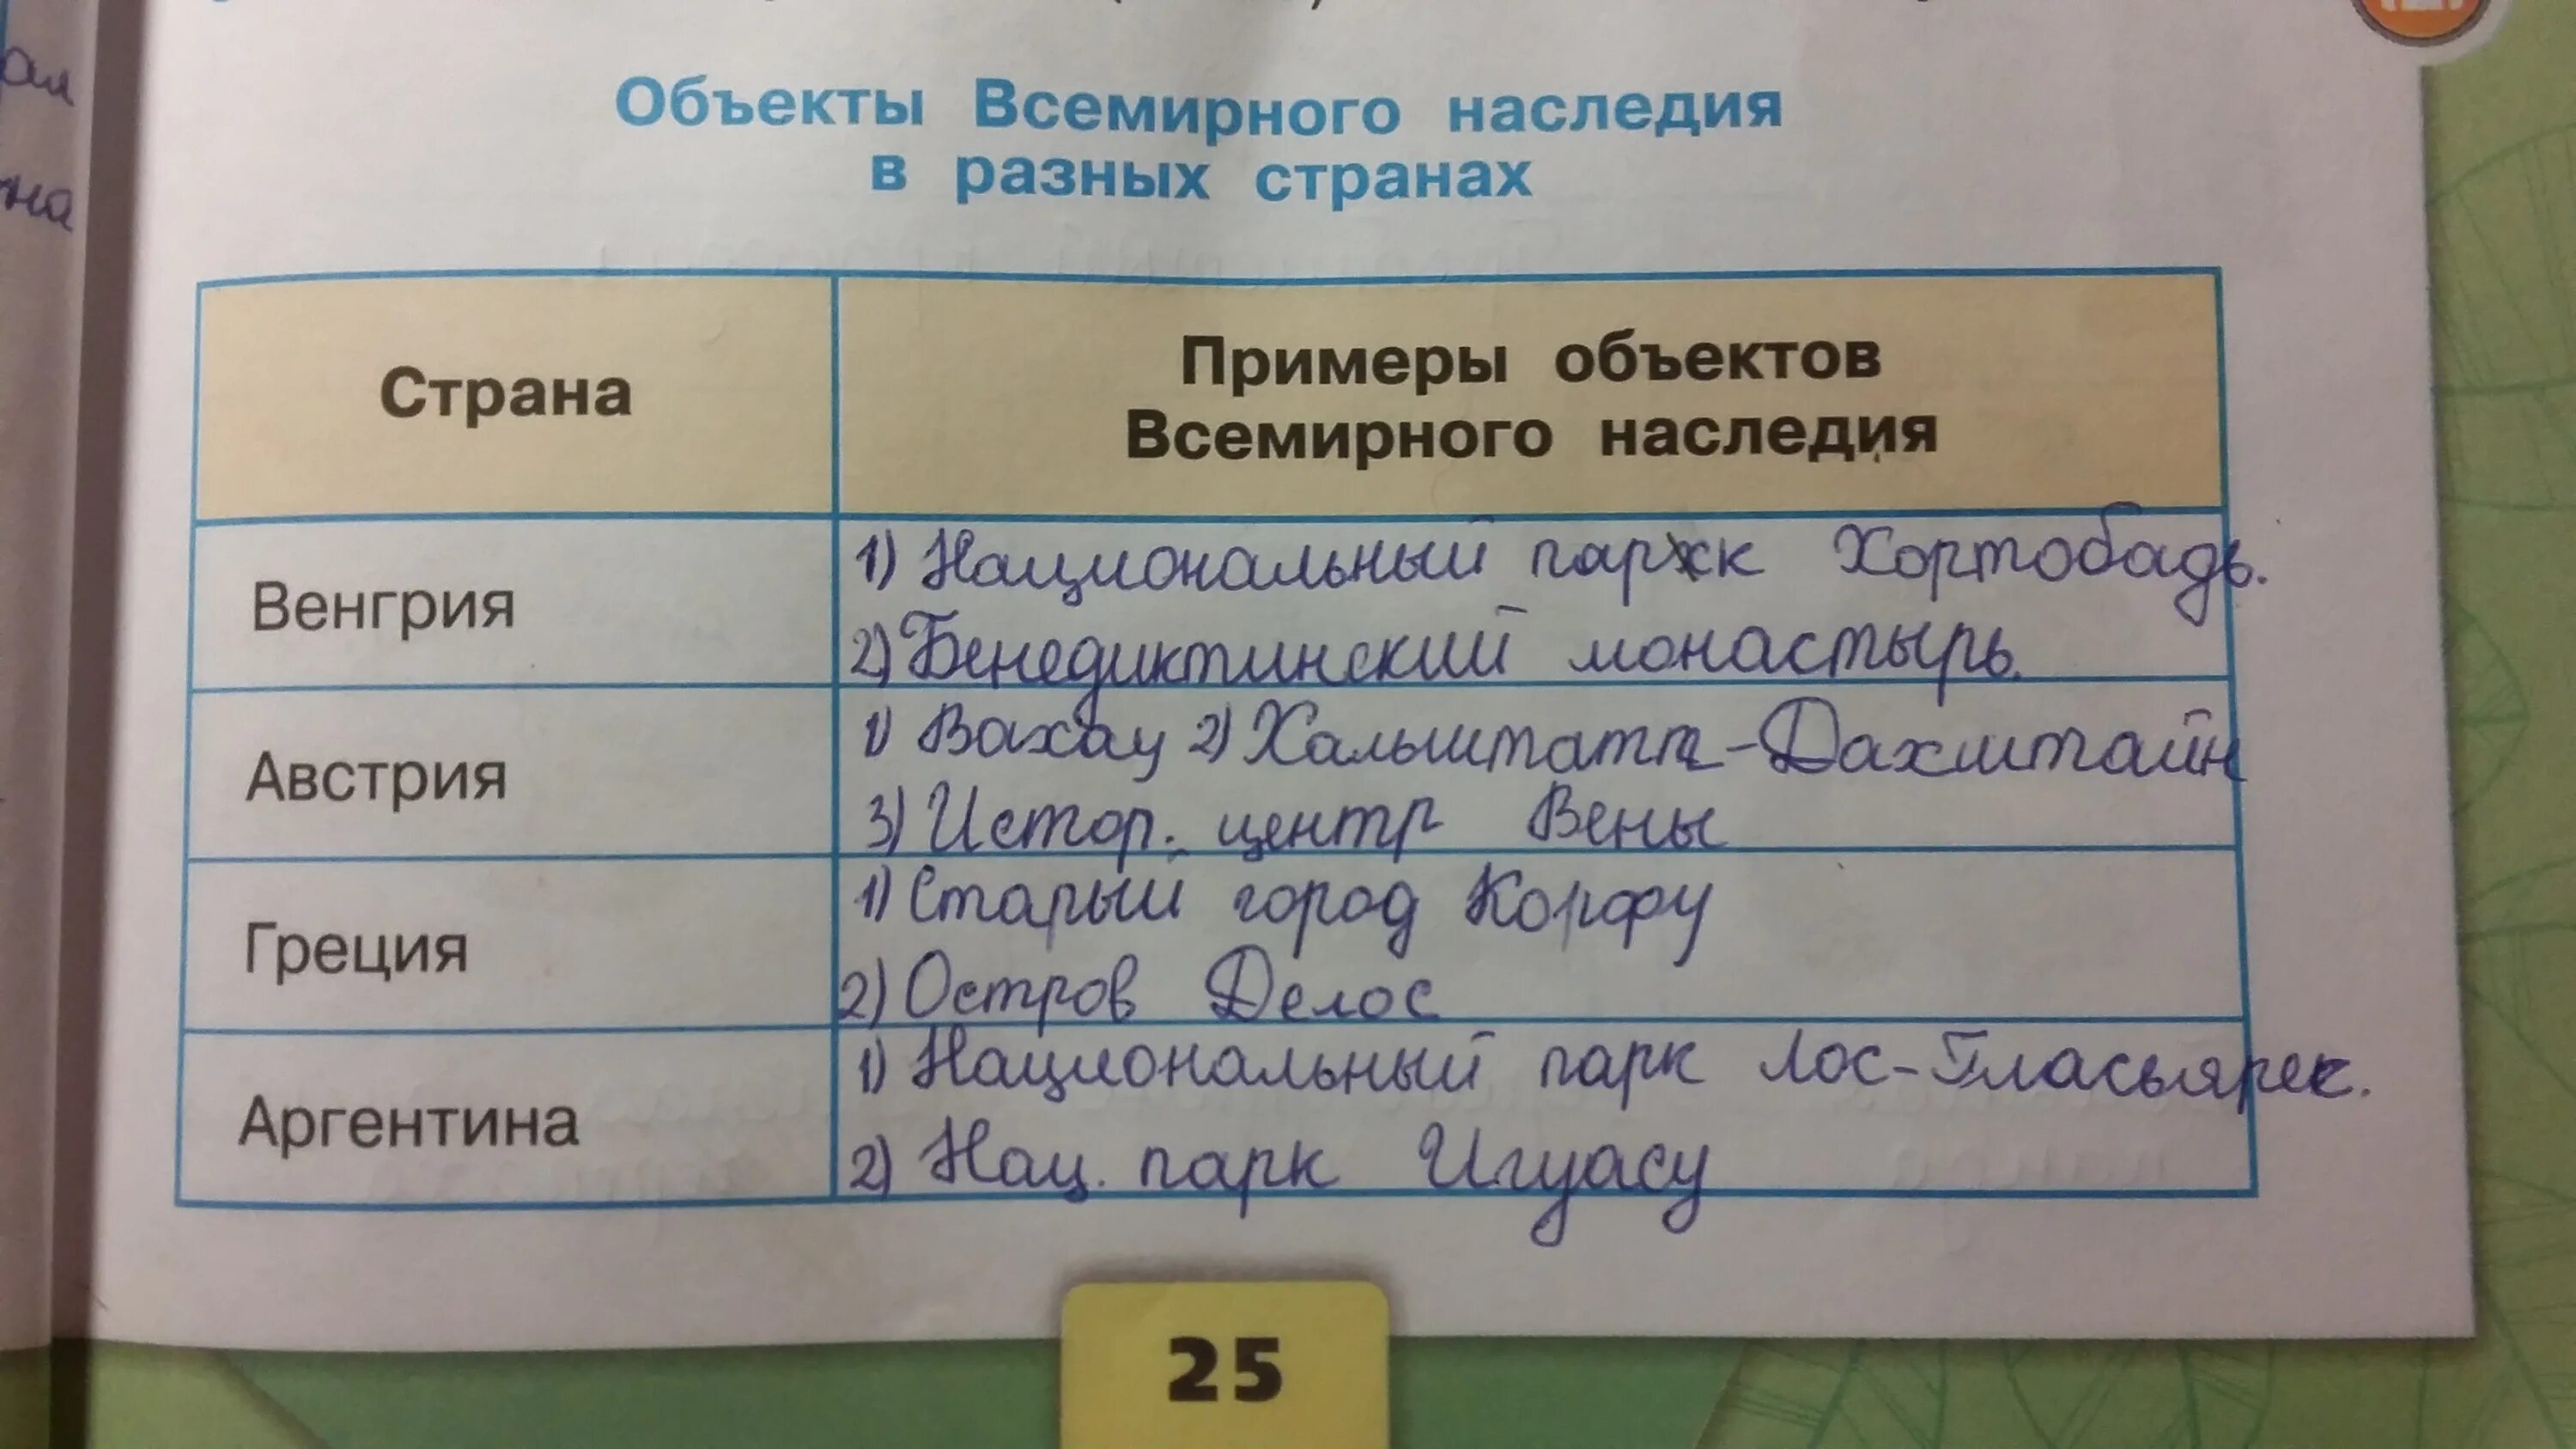 ал
на
Объекты Всемирного наследия
в разных странах
Страна
Примеры объектов
Всемирного наследия
Венгрия
1) Национальный пархк Хортобадь.
2) Бенедиктинский монастырь.
Австрия
1) Вахау 2) Хальштатт-Дахштайн
3) Истор. центр Вены
Греция
1) Старый город Корфу
2) Остров Делос
Аргентина
1) Национальный парк Лос-Гласьярек.
2) Нац. парк Игуасу
25